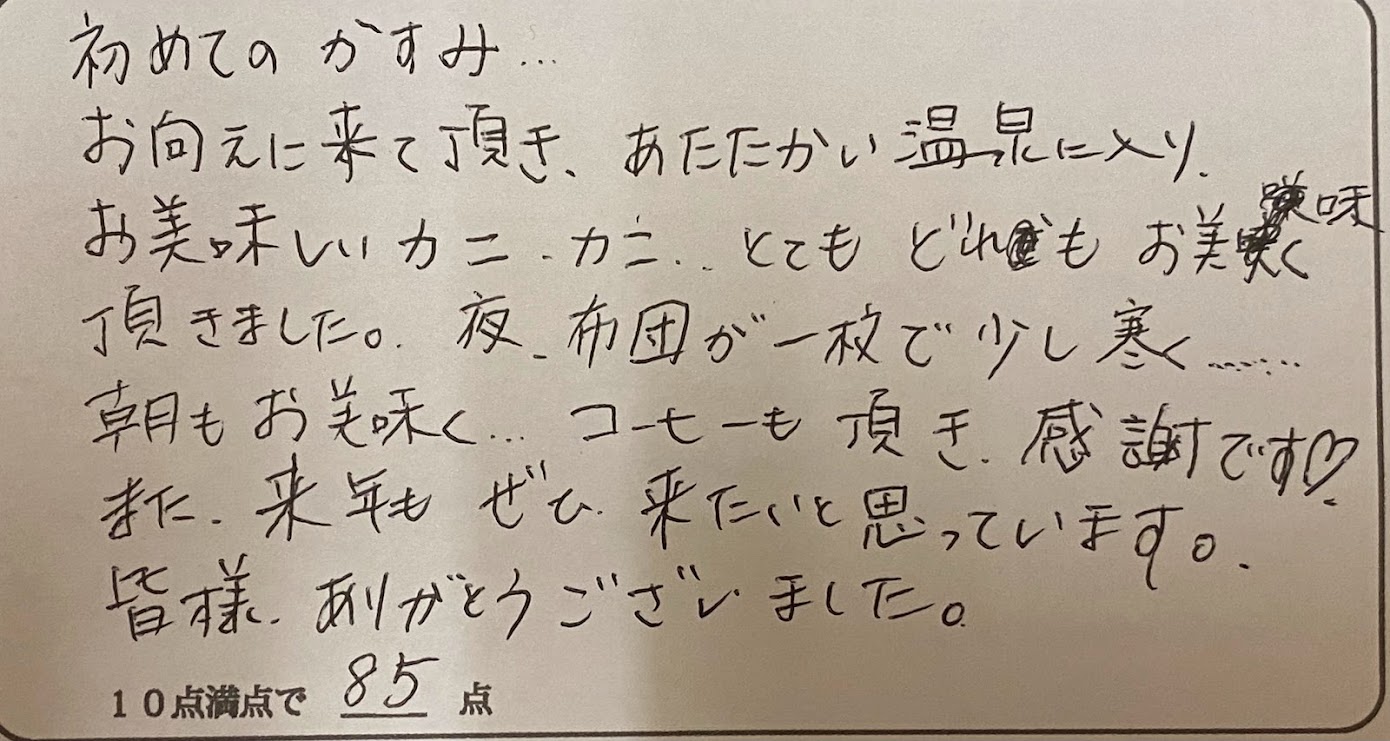 初めての かすみ…
お向えに来て頂き、あたたかい温泉に入り、
お美味しいカニ、カニ… とても どれも お美味く
頂きました。夜、布団が一枚で少し寒く……
朝もお美味く… コーヒーも 頂き、感謝です♡
また、来年も ぜひ 来たいと思っています。
皆様、ありがとうございました。
10点満点で 85 点